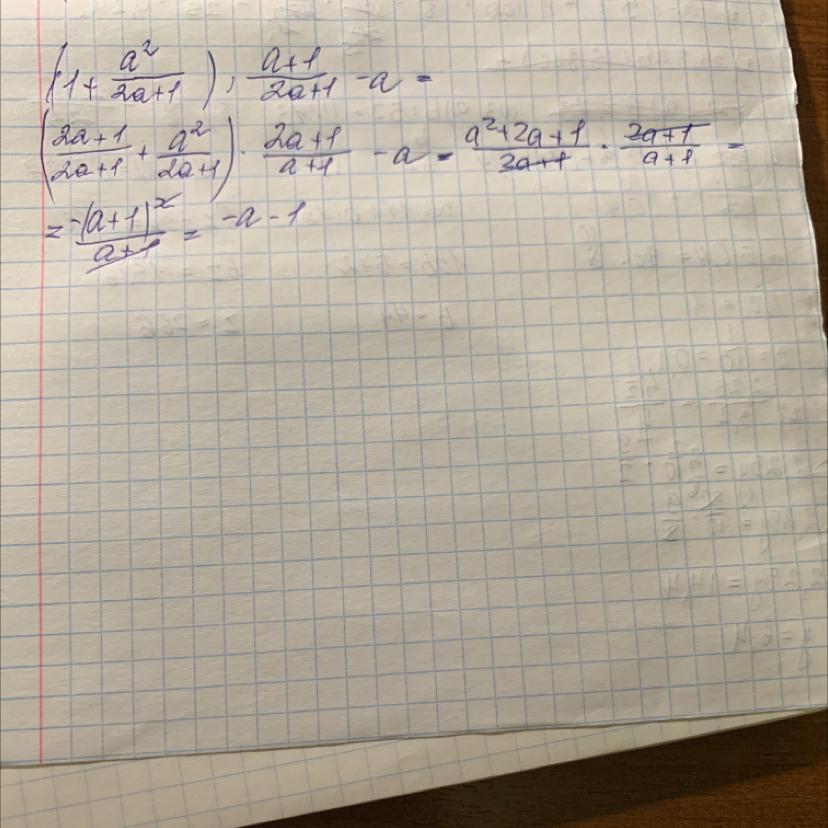 (1 + a²/(2a+1)) : (a+1)/(2a+1) - a =
((2a+1)/(2a+1) + a²/(2a+1)) · (2a+1)/(a+1) - a = (a²+2a+1)/(2a+1) · (2a+1)/(a+1) =
= -(a+1)²/(a+1) = -a - 1